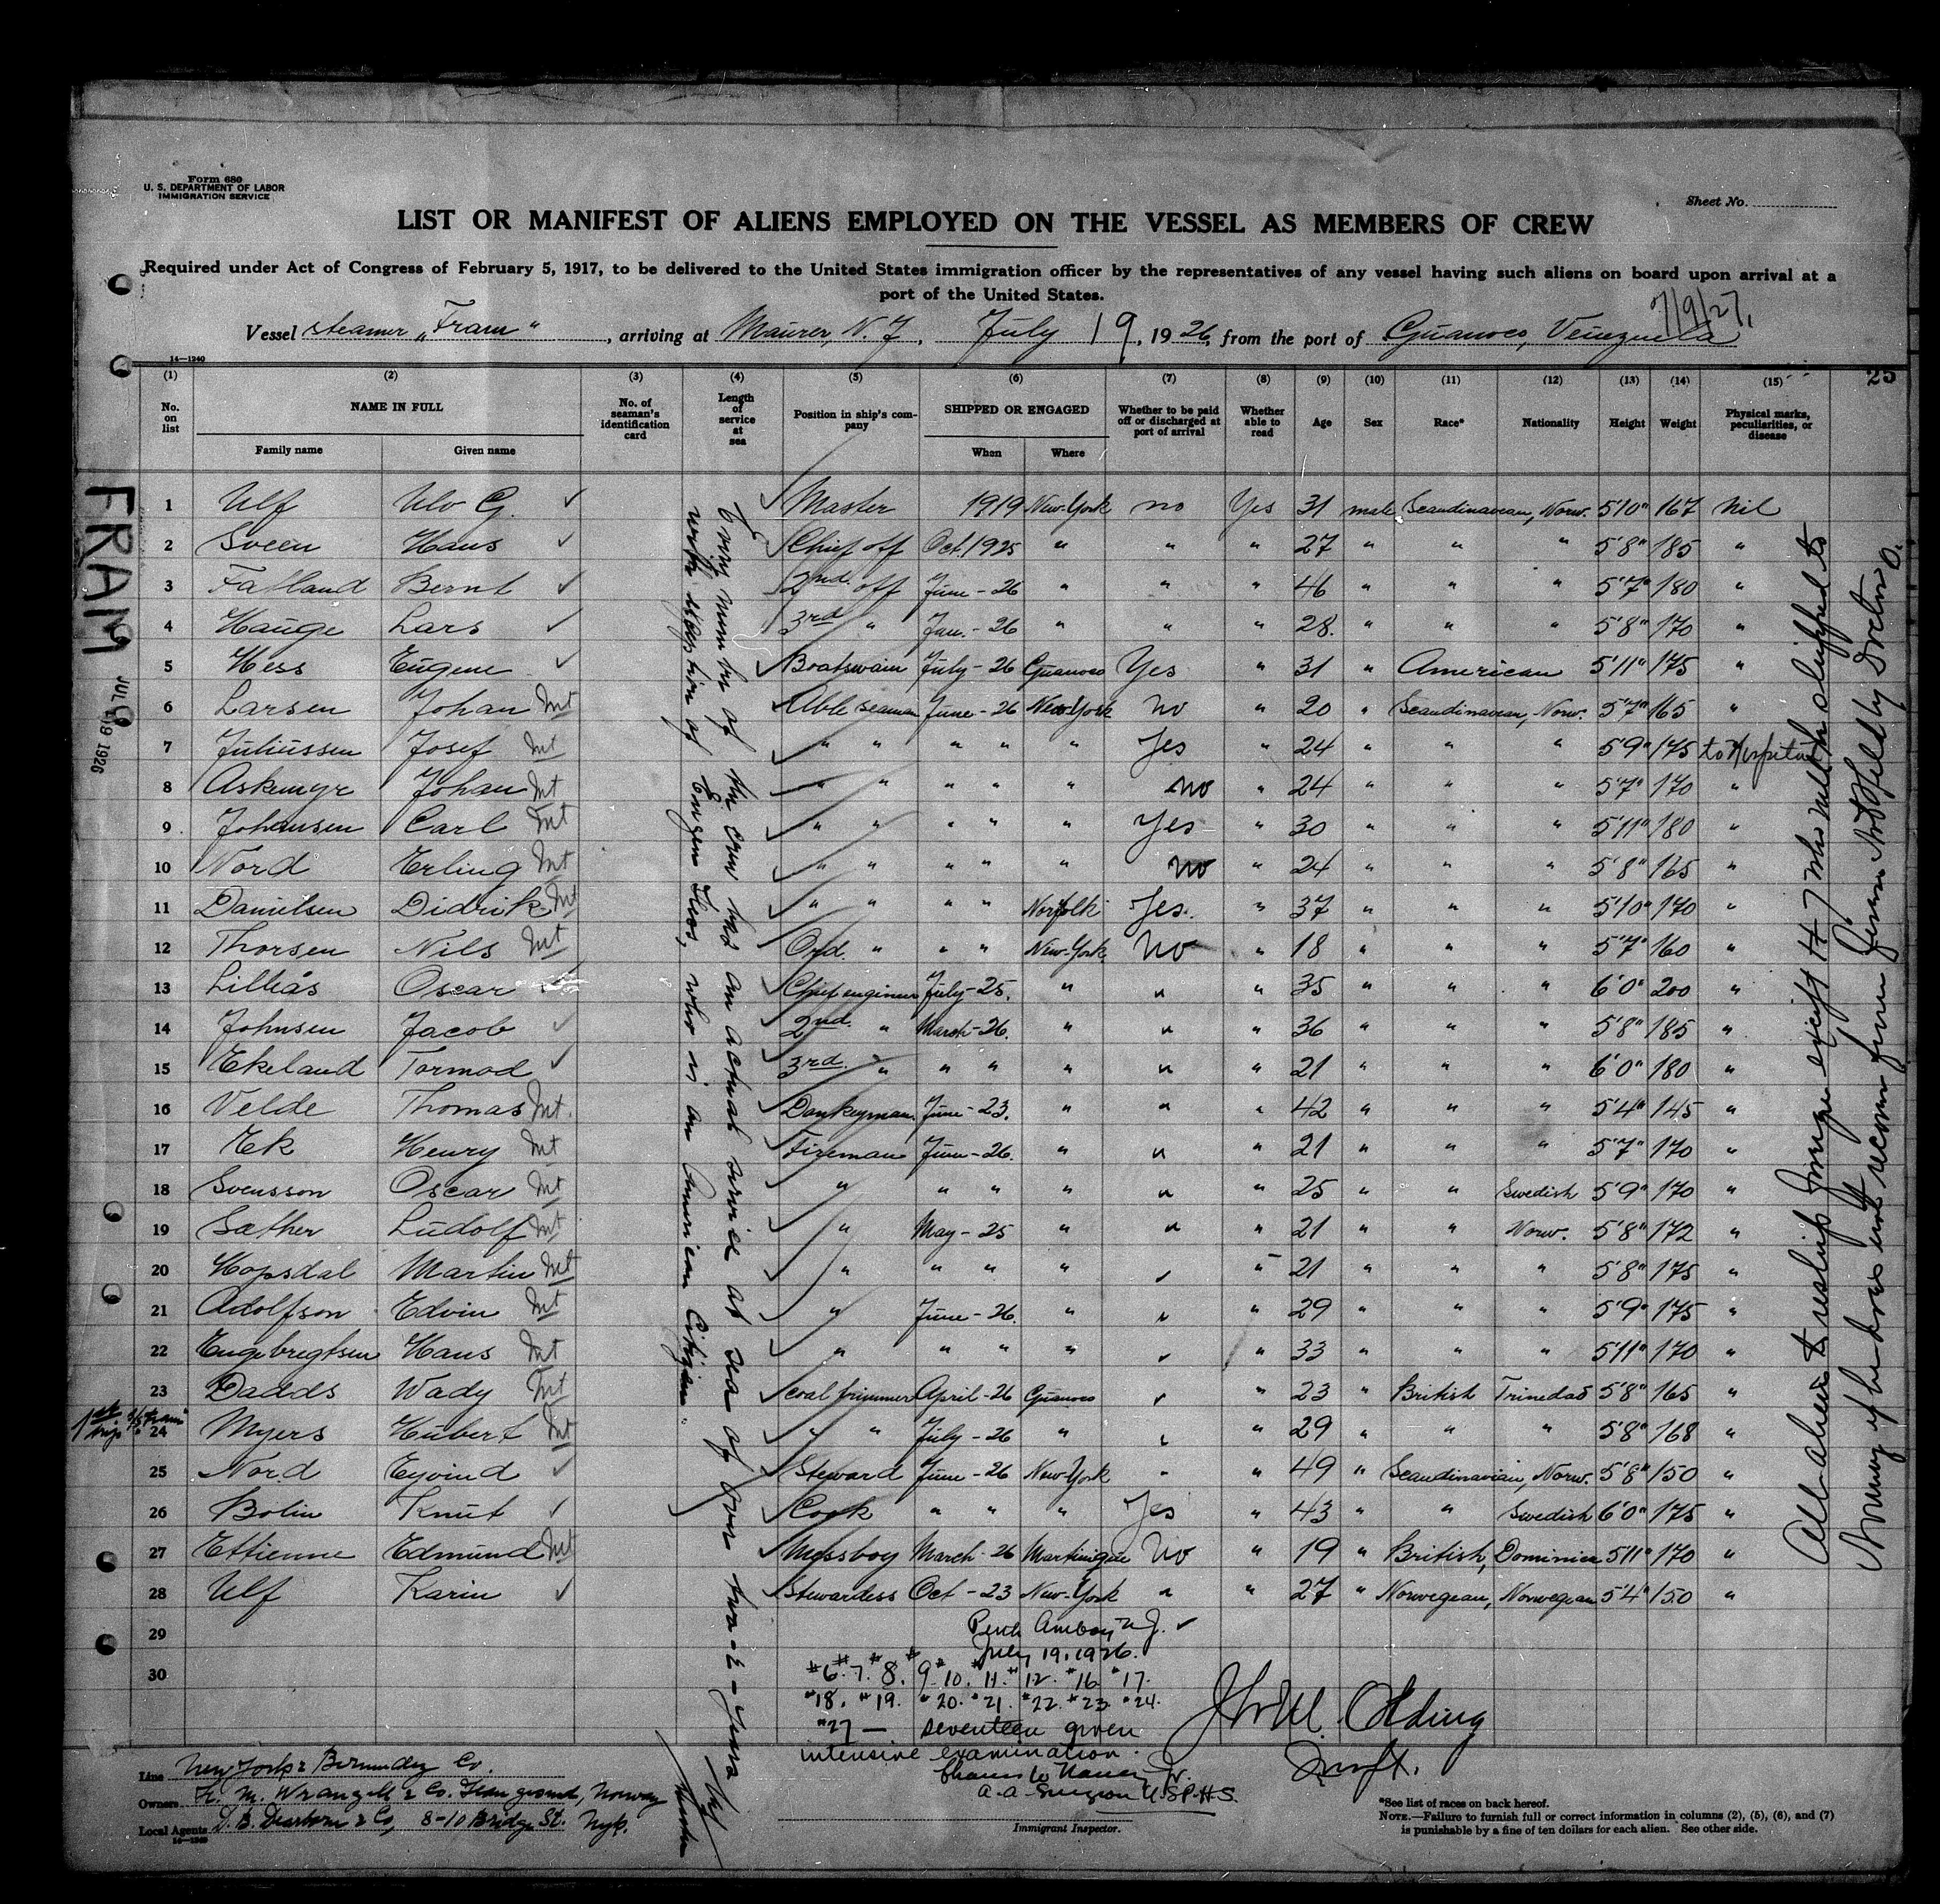 Form 680
U. S. DEPARTMENT OF LABOR
IMMIGRATION SERVICE
Sheet No.
LIST OR MANIFEST OF ALIENS EMPLOYED ON THE VESSEL AS MEMBERS OF CREW
Required under Act of Congress of February 5, 1917, to be delivered to the United States immigration officer by the representatives of any vessel having such aliens on board upon arrival at a
port of the United States.
7/9/27.
Vessel steamer „Fram“, arriving at Maurer, N. J., July 19, 1926, from the port of Guanoco, Venezuela
14-1240
25
(1) (2) (3) (4) (5) (6) (7) (8) (9) (10) (11) (12) (13) (14) (15)
No. on list NAME IN FULL No. of seaman's identification card Length of service at sea Position in ship's company SHIPPED OR ENGAGED Whether to be paid off or discharged at port of arrival Whether able to read Age Sex Race* Nationality Height Weight Physical marks, peculiarities, or disease
Family name Given name When Where
1 Ulf Ulv G. ✓ Master 1919 New-York no Yes 31 male Scandinavian, Norw. 5'10" 167 Nil
2 Sveen Hans ✓ Chief off Oct. 1925 " " " 27 " " " 5'8" 185 "
3 Fatland Bernt ✓ 2nd off June-26 " " " 46 " " " 5'7" 180 "
4 Hauge Lars ✓ 3rd " Jan.-26 " " " 28. " " " 5'8" 170 "
5 Hess Eugene ✓ Boatswain July-26 Guanoco Yes " 31 " American 5'11" 175 "
6 Larsen Johan Mt Able seaman June-26 New-York No " 20 " Scandinavian, Norw. 5'7" 165 "
7 Juliussen Josef Mt " " " " " Yes " 24 " " " 5'9" 175 to Hospital
8 Askemyr Johan Mt " " " " " no " 24 " " " 5'7" 170 "
9 Johansen Carl Mt " " " " " Yes " 30 " " " 5'11" 180 "
10 Nord Erling Mt " " " " " no " 24 " " " 5'8" 165 "
11 Danielsen Didrik Mt " " " " Norfolk Yes. " 37 " " " 5'10" 170 "
12 Thorsen Nils Mt Ord. " " " New-York No " 18 " " " 5'7" 160 "
13 Lilleås Oscar ✓ Chief engineer July-25. " " " 35 " " " 6'0" 200 "
14 Johnsen Jacob ✓ 2nd. " March-26. " " " 36 " " " 5'8" 185 "
15 Ekeland Tormod ✓ 3rd. " " " " " " 21 " " " 6'0" 180 "
16 Velde Thomas Mt. Donkeyman June-23. " " " 42 " " " 5'4" 145 "
17 Ek Henry Mt Fireman June-26. " " " 21 " " " 5'7" 170 "
18 Svensson Oscar Mt " " " " " " 25 " " Swedish 5'9" 170 "
19 Sæther Ludolf Mt " May-25 " " " 21 " " Norw. 5'8" 172 "
20 Hopsdal Martin Mt " " " " " " 21 " " " 5'8" 175 "
21 Adolfson Edvin Mt " June-26. " " " 29 " " " 5'9" 175 "
22 Engebregtsen Hans Mt " " " " " " 33 " " " 5'11" 170 "
23 Dadds Wady Mt coal trimmer April-26 Guanoco " " 23 " British Trinedad 5'8" 165 "
1st trip 24 Myers Hubert Mt " " July-26 " " " 29 " " " 5'8" 168 "
25 Nord Eyvind ✓ Steward June-26 New-York " " 49 " Scandinavian, Norw. 5'8" 150 "
26 Bolin Knut ✓ Cook " " " Yes " 43 " " Swedish 6'0" 175 "
27 Ettienne Edmund Mt Messboy March-26 Martinique No " 19 " British, Dominica 5'11" 170 "
28 Ulf Karin ✓ Stewardess Oct-23 New-York " " 27 " Norwegian, Norwegian 5'4" 150 "
29
30
FRAM
JUL 19 1926
Every member of the crew has an actual service at sea of over two-2-years
with exception of Eugene Hess, who is an American Citizen.
Ulf
Master
All aliens to reship foreign except #7 who will be shipped to
Norway if he does not recover from
Perth Amboy N.J. ✓
July 19, 1926.
#6. #7. #8. #9. #10. #11. #12. #16. #17.
#18. #19. #20. #21. #22. #23. #24.
#27 — seventeen given
intensive examination.
A.A. Surgeon U.S.P.H.S.
Immigrant Inspector.
Olding
Line New York & Bermudez Co.
Owners H. M. Wrangell & Co. Haugesund, Norway
Local Agents D. B. Dearborn & Co, 8-10 Bridge St. Nyk.
14-1240
*See list of races on back hereof.
NOTE.—Failure to furnish full or correct information in columns (2), (5), (6), and (7)
is punishable by a fine of ten dollars for each alien. See other side.